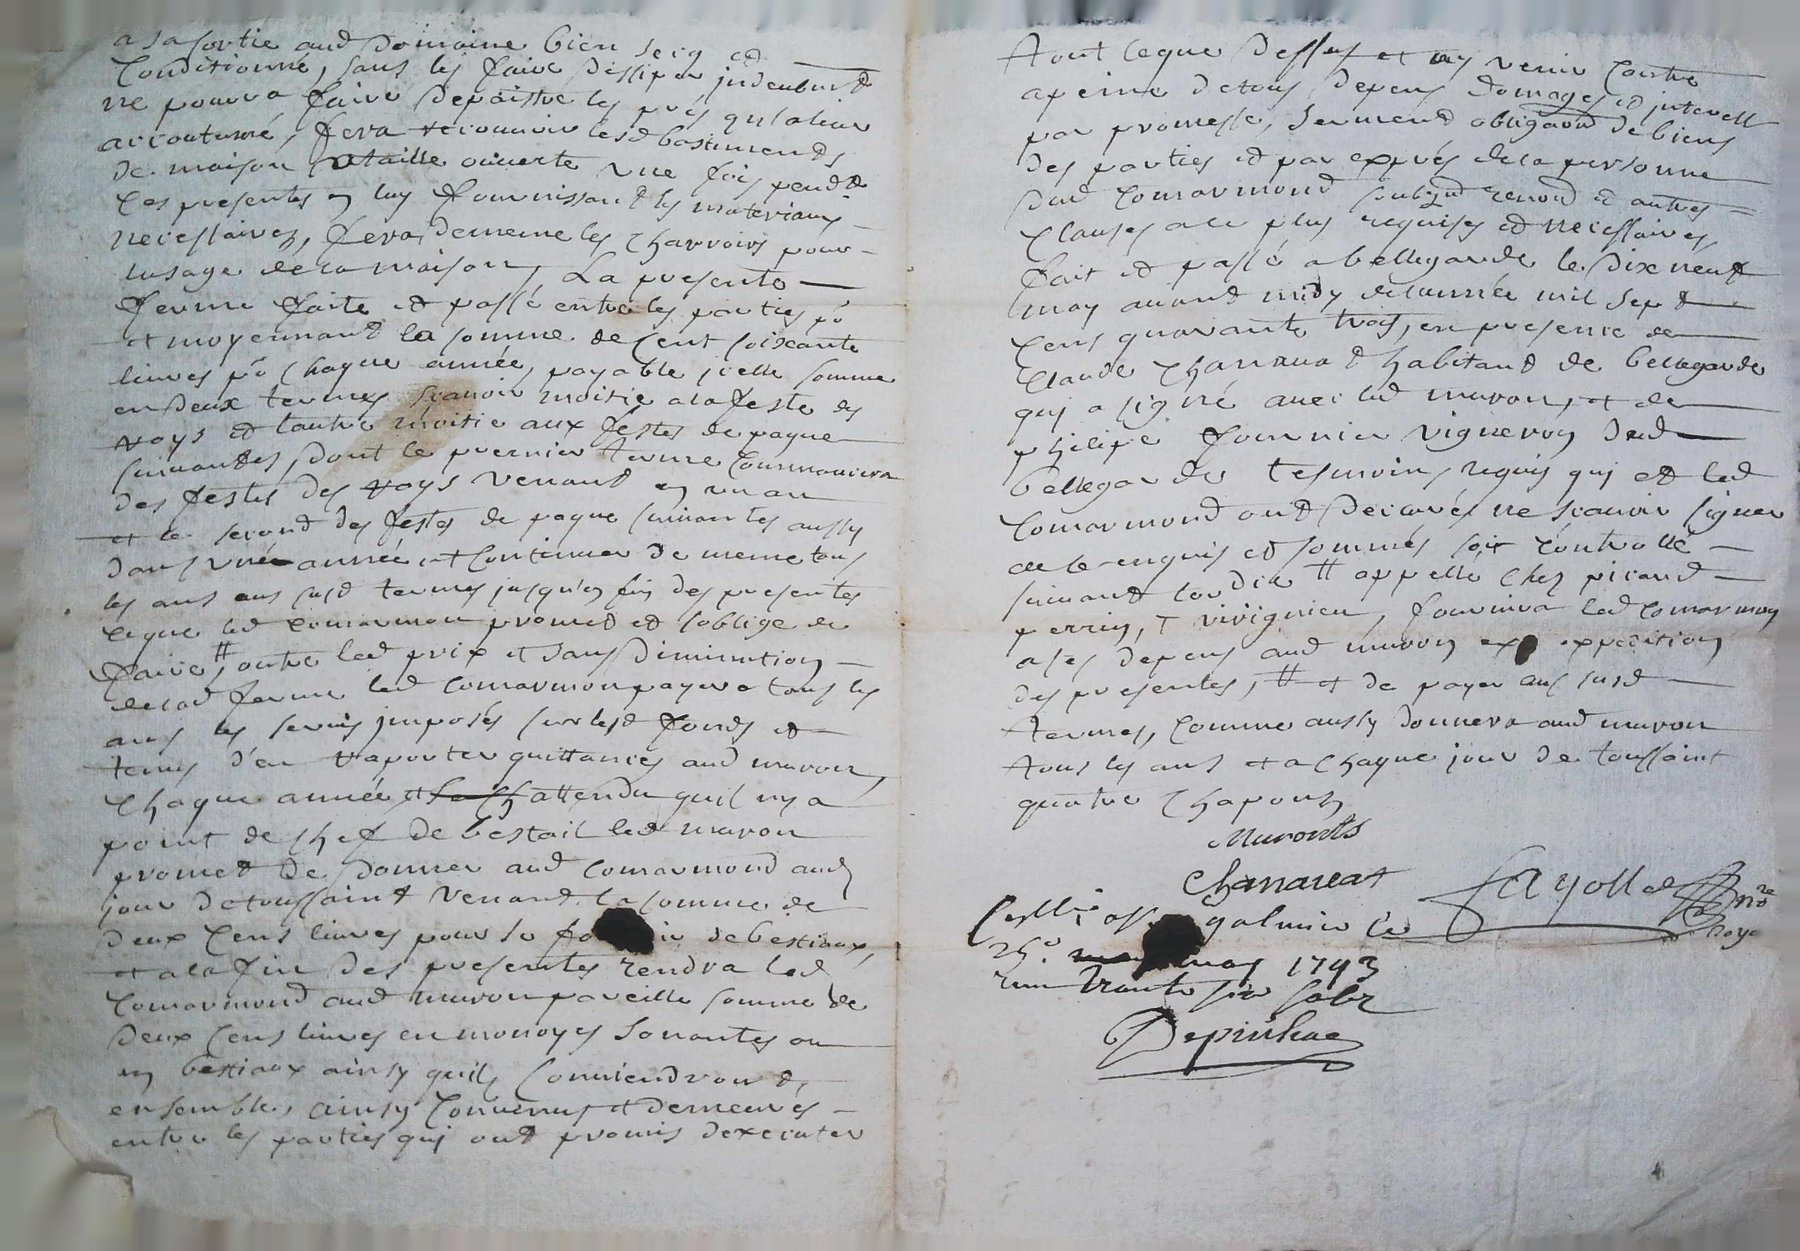 a sa sortie aud domaine bien secq et
conditionné, sans les faire dissiper indeubmt
ne pourra faire depaistre les prés qu'alieu
accoutumé, fera recouvrir lesd bastiments
de maison a taille ouverte une fois pendt
ces presentes en luy fournissant les materiaux
necessaires, fera de meme les charrois pour
lusage de la maison, La presente
ferme faite et passé entre les parties po
et moyennant la somme de cent soixante
livres po chaque année, payable icelle somme
en deux termes scavoir moitie a la feste des
roys et lautre moitie aux festes de paque
suivantes, dont le premier terme commancera
des festes des roys venant en un an
et le second des festes de paque suivantes aussy
dans une année et continuer de meme tous
les ans aus susd termes jusqu'en fin des presentes
ceque led comarmon promet et soblige de
faire ⧺, outre led prix et sans diminution
de lad ferme led comarmon payera tous les
ans les servis imposés sur lesd fonds et
tenus d'en raporter quittances aud muron,
chaque année et attendu quil ny a
point de chef de bestail led muron
promet de donner aud comarmond aud
jour de toussaint venant la somme de
deux cens livres pour le de bestiaux,
et a la fin des presentes rendra led
comarmond aud muron pareille somme de
deux cens livres en monoyes sonantes ou
en bestiaux ainsy quils conviendront
ensemble, ainsy convenus et demeurés
entre les parties qui ont promis dexecuter
tout ceque dessus et ny venir contre
a peine de tous depens domages et interest
par promesse, serment obligaon de biens
des parties et par exprés de la personne
dud comarmond renond et autres
clauses a ce plus requises et necessaires,
fait et passé a bellegarde le dix neuf
may avant midy de lannée mil sept
cens quarante trois, en presence de
Claude Chanavat habitant de bellegarde
qui a signé avec led muron, et de
philipe fournier vigneron dud
bellegarde tesmoins requis qui et led
comarmond ont declarés ne scavoir signer
de ce enquis et sommés soit controllé
suivant lordce ⧺ appellé chez picard
perrin, fournira led comarmon
a ses depens aud muron expedition
des presentes, ⧺ et de payer aus susd
termes, comme aussy donnera aud muron
tous les ans et a chaque jour de toussaint
quatre chapons
Muronts
Chanavat
Fayolle nore
royal
Conllé a St galmier le
25e may 1743
reçu trante six solz
Depinhac